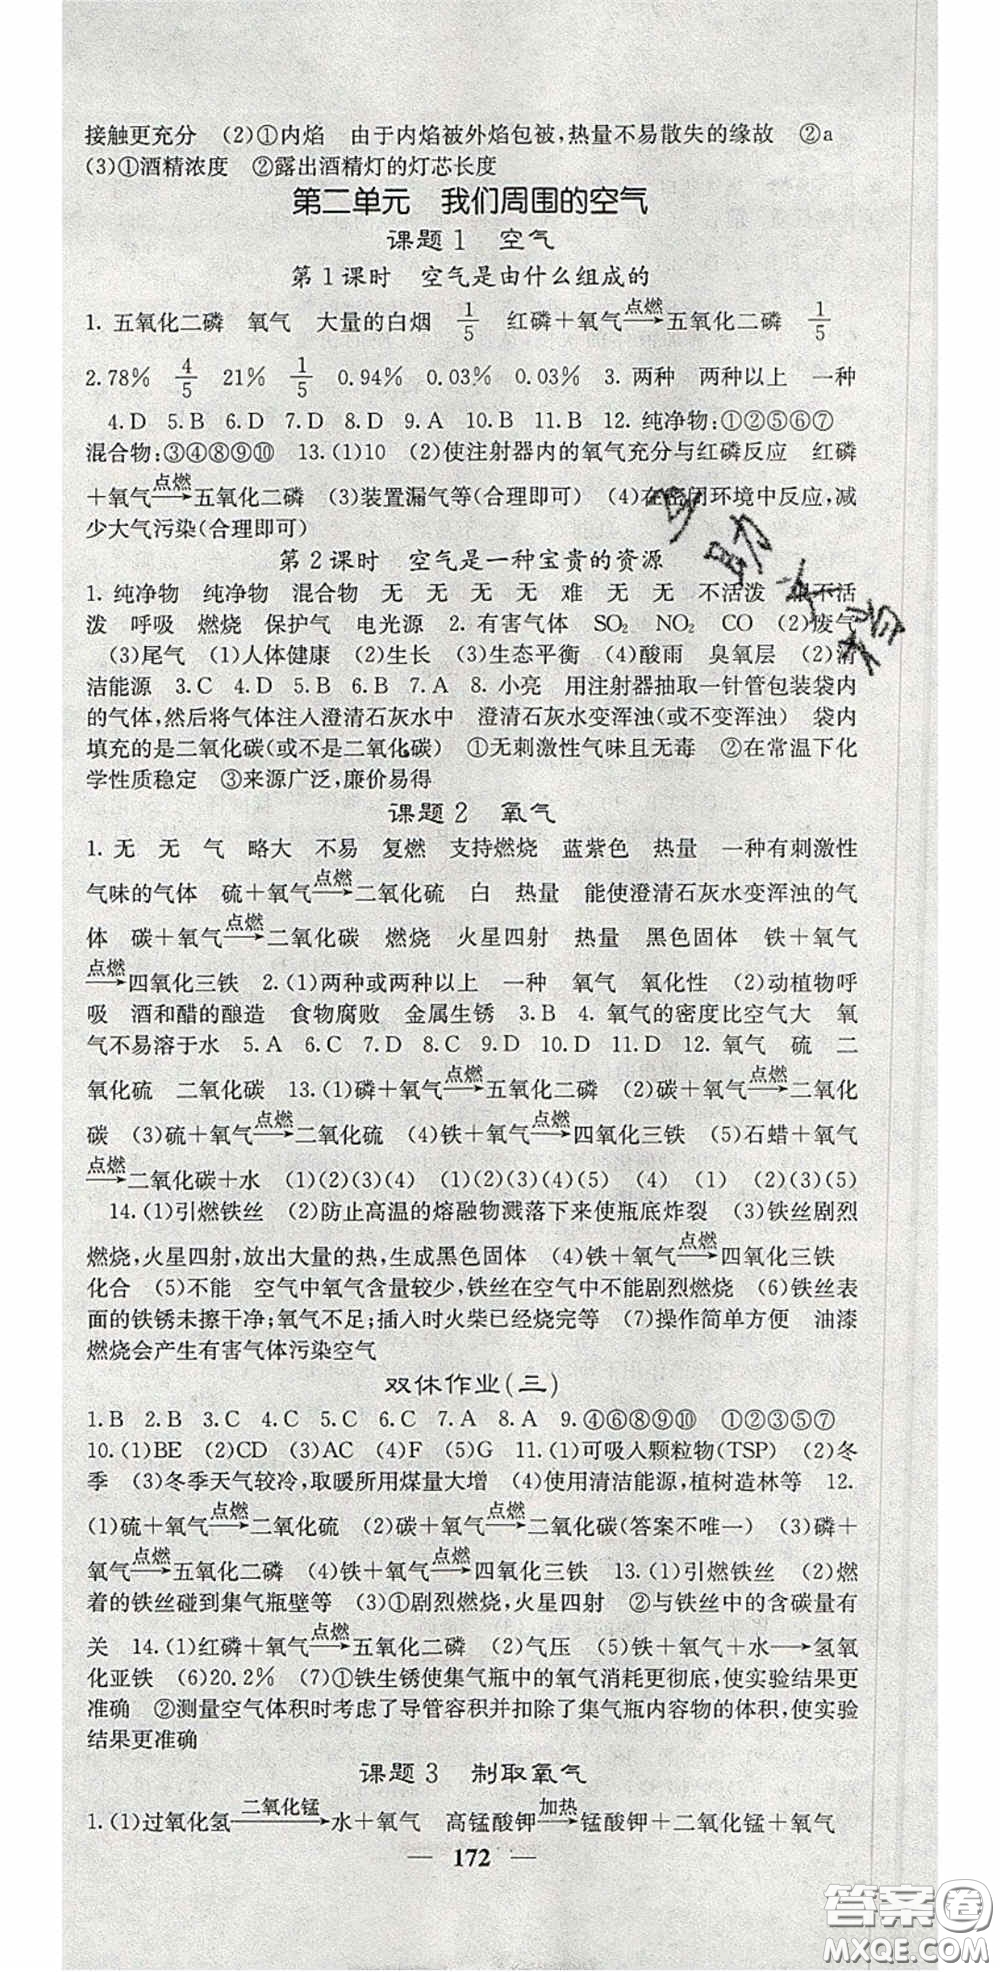 接触更充分　(2)①内焰　由于内焰被外焰包被,热量不易散失的缘故　②a
(3)①酒精浓度　②露出酒精灯的灯芯长度
第二单元　我们周围的空气
课题1　空气
第1课时　空气是由什么组成的
1. 五氧化二磷　氧气　大量的白烟　1/5　红磷＋氧气—点燃→五氧化二磷　1/5
2.78%　4/5　21%　1/5　0.94%　0.03%　0.03%　3. 两种　两种以上　一种
4.D　5.B　6.D　7.D　8.D　9.A　10.B　11.B　12. 纯净物:①②⑤⑥⑦
混合物:③④⑧⑨⑩　13.(1)10　(2)使注射器内的氧气充分与红磷反应　红磷
＋氧气—点燃→五氧化二磷　(3)装置漏气等(合理即可)　(4)在密闭环境中反应,减
少大气污染(合理即可)
第2课时　空气是一种宝贵的资源
1. 纯净物　纯净物　混合物　无　无　无　无　难　无　无　不活泼　很不活
泼　呼吸　燃烧　保护气　电光源　2. 有害气体　SO₂　NO₂　CO　(2)废气
(3)尾气　(1)人体健康　(2)生长　(3)生态平衡　(4)酸雨　臭氧层　(2)清
洁能源　3.C　4.D　5.B　6.B　7.A　8. 小亮　用注射器抽取一针管包装袋内
的气体,然后将气体注入澄清石灰水中　澄清石灰水变浑浊(或不变浑浊)　袋内
填充的是二氧化碳(或不是二氧化碳)　①无刺激性气味且无毒　②在常温下化
学性质稳定　③来源广泛,廉价易得
课题2　氧气
1. 无　无　气　略大　不易　复燃　支持燃烧　蓝紫色　热量　一种有刺激性
气味的气体　硫＋氧气—点燃→二氧化硫　白　热量　能使澄清石灰水变浑浊的气
体　碳＋氧气—点燃→二氧化碳　燃烧　火星四射　热量　黑色固体　铁＋氧气
—点燃→四氧化三铁　2.(1)两种或两种以上　一种　氧气　氧化性　(2)动植物呼
吸　酒和醋的酿造　食物腐败　金属生锈　3.B　4. 氧气的密度比空气大　氧
气不易溶于水　5.A　6.C　7.D　8.C　9.C　10.D　11.D　12. 氧气　硫　二
氧化硫　二氧化碳　13.(1)磷＋氧气—点燃→五氧化二磷　(2)碳＋氧气—点燃→二氧化
碳　(3)硫＋氧气—点燃→二氧化硫　(4)铁＋氧气—点燃→四氧化三铁　(5)石蜡＋氧气
—点燃→二氧化碳＋水　(1)(2)(3)(4)　(4)　(1)　(2)(3)(5)
14.(1)引燃铁丝　(2)防止高温的熔融物溅落下来使瓶底炸裂　(3)铁丝剧烈
燃烧,火星四射,放出大量的热,生成黑色固体　(4)铁＋氧气—点燃→四氧化三铁
化合　(5)不能　空气中氧气含量较少,铁丝在空气中不能剧烈燃烧　(6)铁丝表
面的铁锈未擦干净;氧气不足;插入时火柴已经烧完等　(7)操作简单方便　油漆
燃烧会产生有害气体污染空气
双休作业(三)
1.B　2.B　3.C　4.C　5.C　6.C　7.A　8.A　9.④⑥⑧⑨⑩　①②③⑤⑦
10.(1)BE　(2)CD　(3)AC　(4)F　(5)G　11.(1)可吸入颗粒物(TSP)　(2)冬
季　(3)冬季天气较冷,取暖所用煤量大增　(4)使用清洁能源,植树造林等　12.
(1)硫＋氧气—点燃→二氧化硫　(2)碳＋氧气—点燃→二氧化碳(答案不唯一)　(3)磷＋
氧气—点燃→五氧化二磷　(4)铁＋氧气—点燃→四氧化三铁　13.(1)引燃铁丝　(2)燃
着的铁丝碰到集气瓶壁等　(3)①剧烈燃烧,火星四射　②与铁丝中的含碳量有
关　14.(1)红磷＋氧气—点燃→五氧化二磷　(2)气压　(5)铁＋氧气＋水→氢氧
化亚铁　(6)20.2%　(7)①铁生锈使集气瓶中的氧气消耗更彻底,使实验结果更
准确　②测量空气体积时考虑了导管容积并扣除了集气瓶内容物的体积,使实验
结果更准确
课题3　制取氧气
1.(1)过氧化氢—二氧化锰→水＋氧气　高锰酸钾—加热→锰酸钾＋二氧化锰＋氧气
— 172 —
答案圈
MXQE.COM